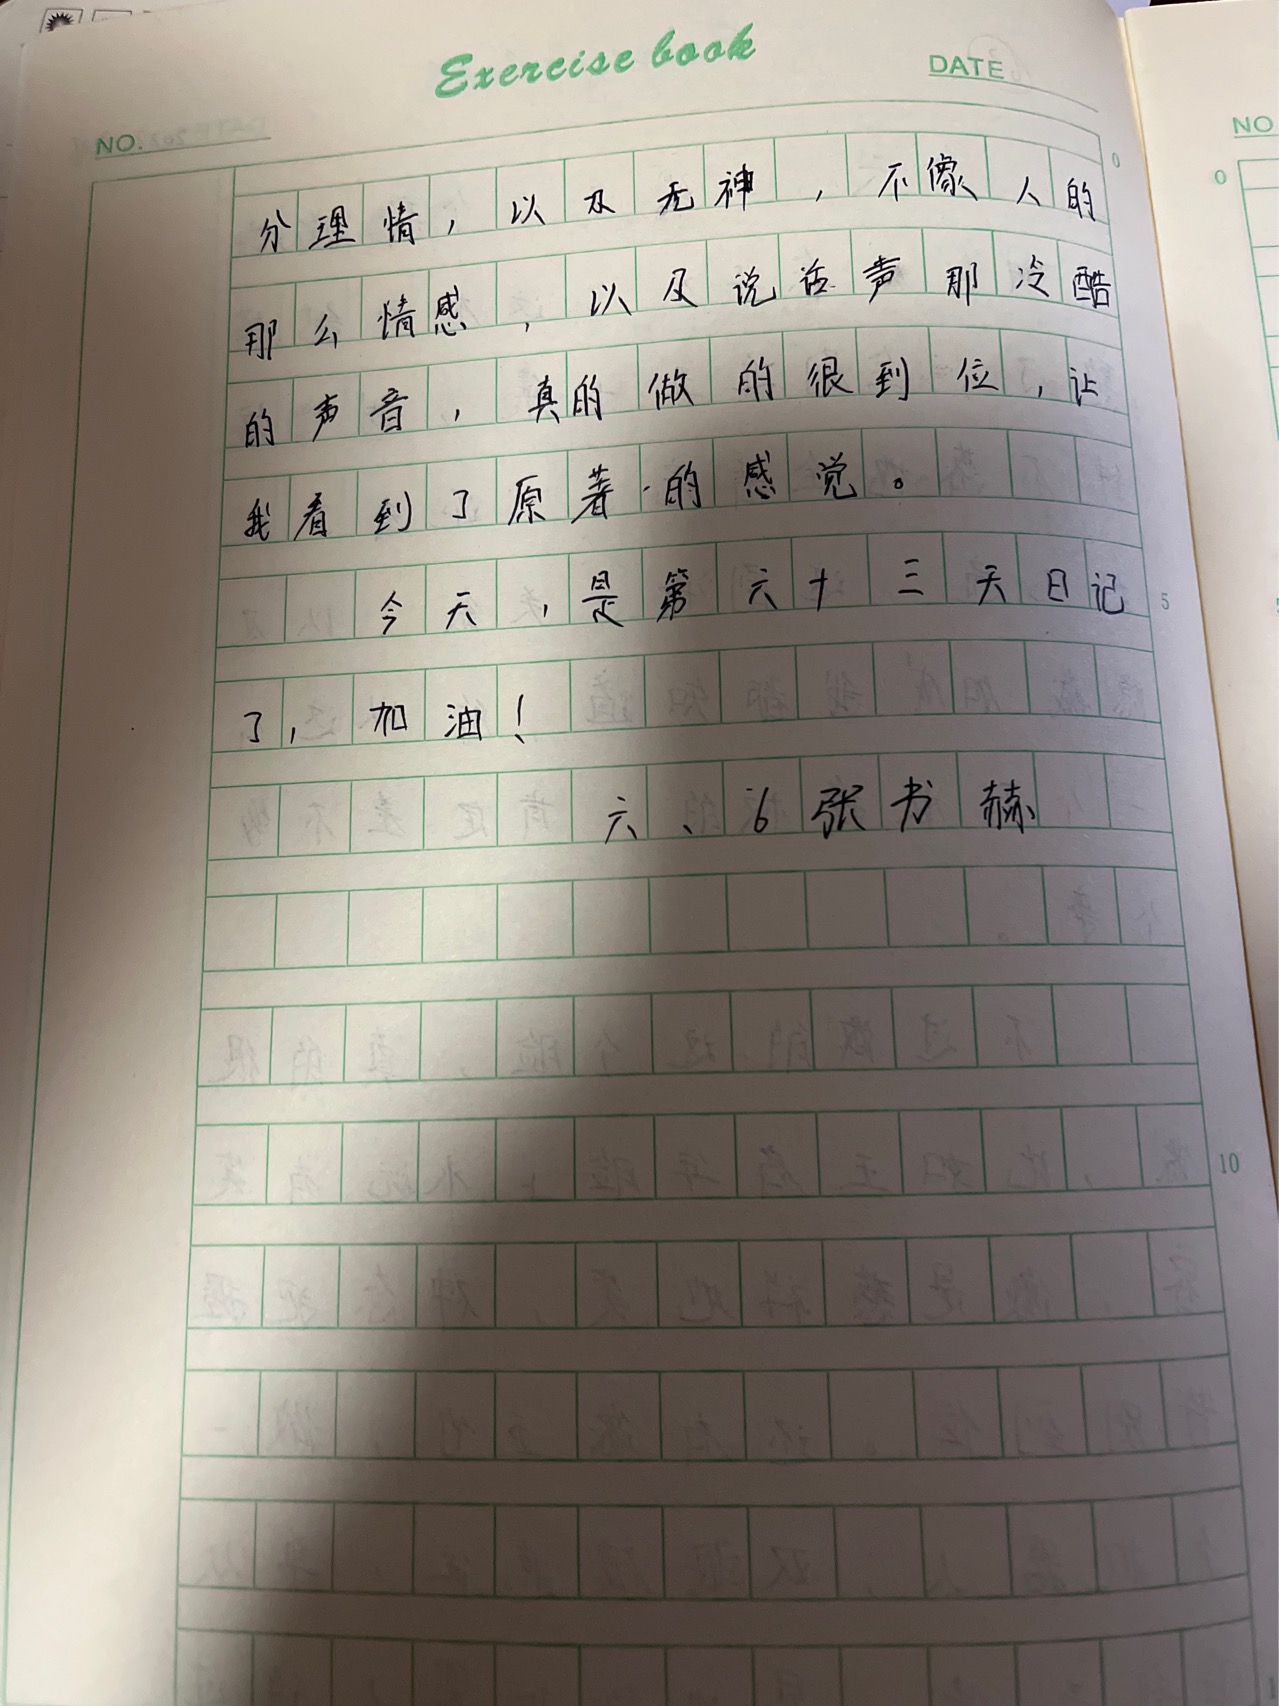 Exercise book
DATE
NO.
NO
0
0
分理情，以及无神，不像人的
那么情感，以及说话声那冷酷
的声音，真的做的很到位，让
我看到了原著的感觉。
今天，是第六十三天日记
5
了，加油！
六、6张书赫
10